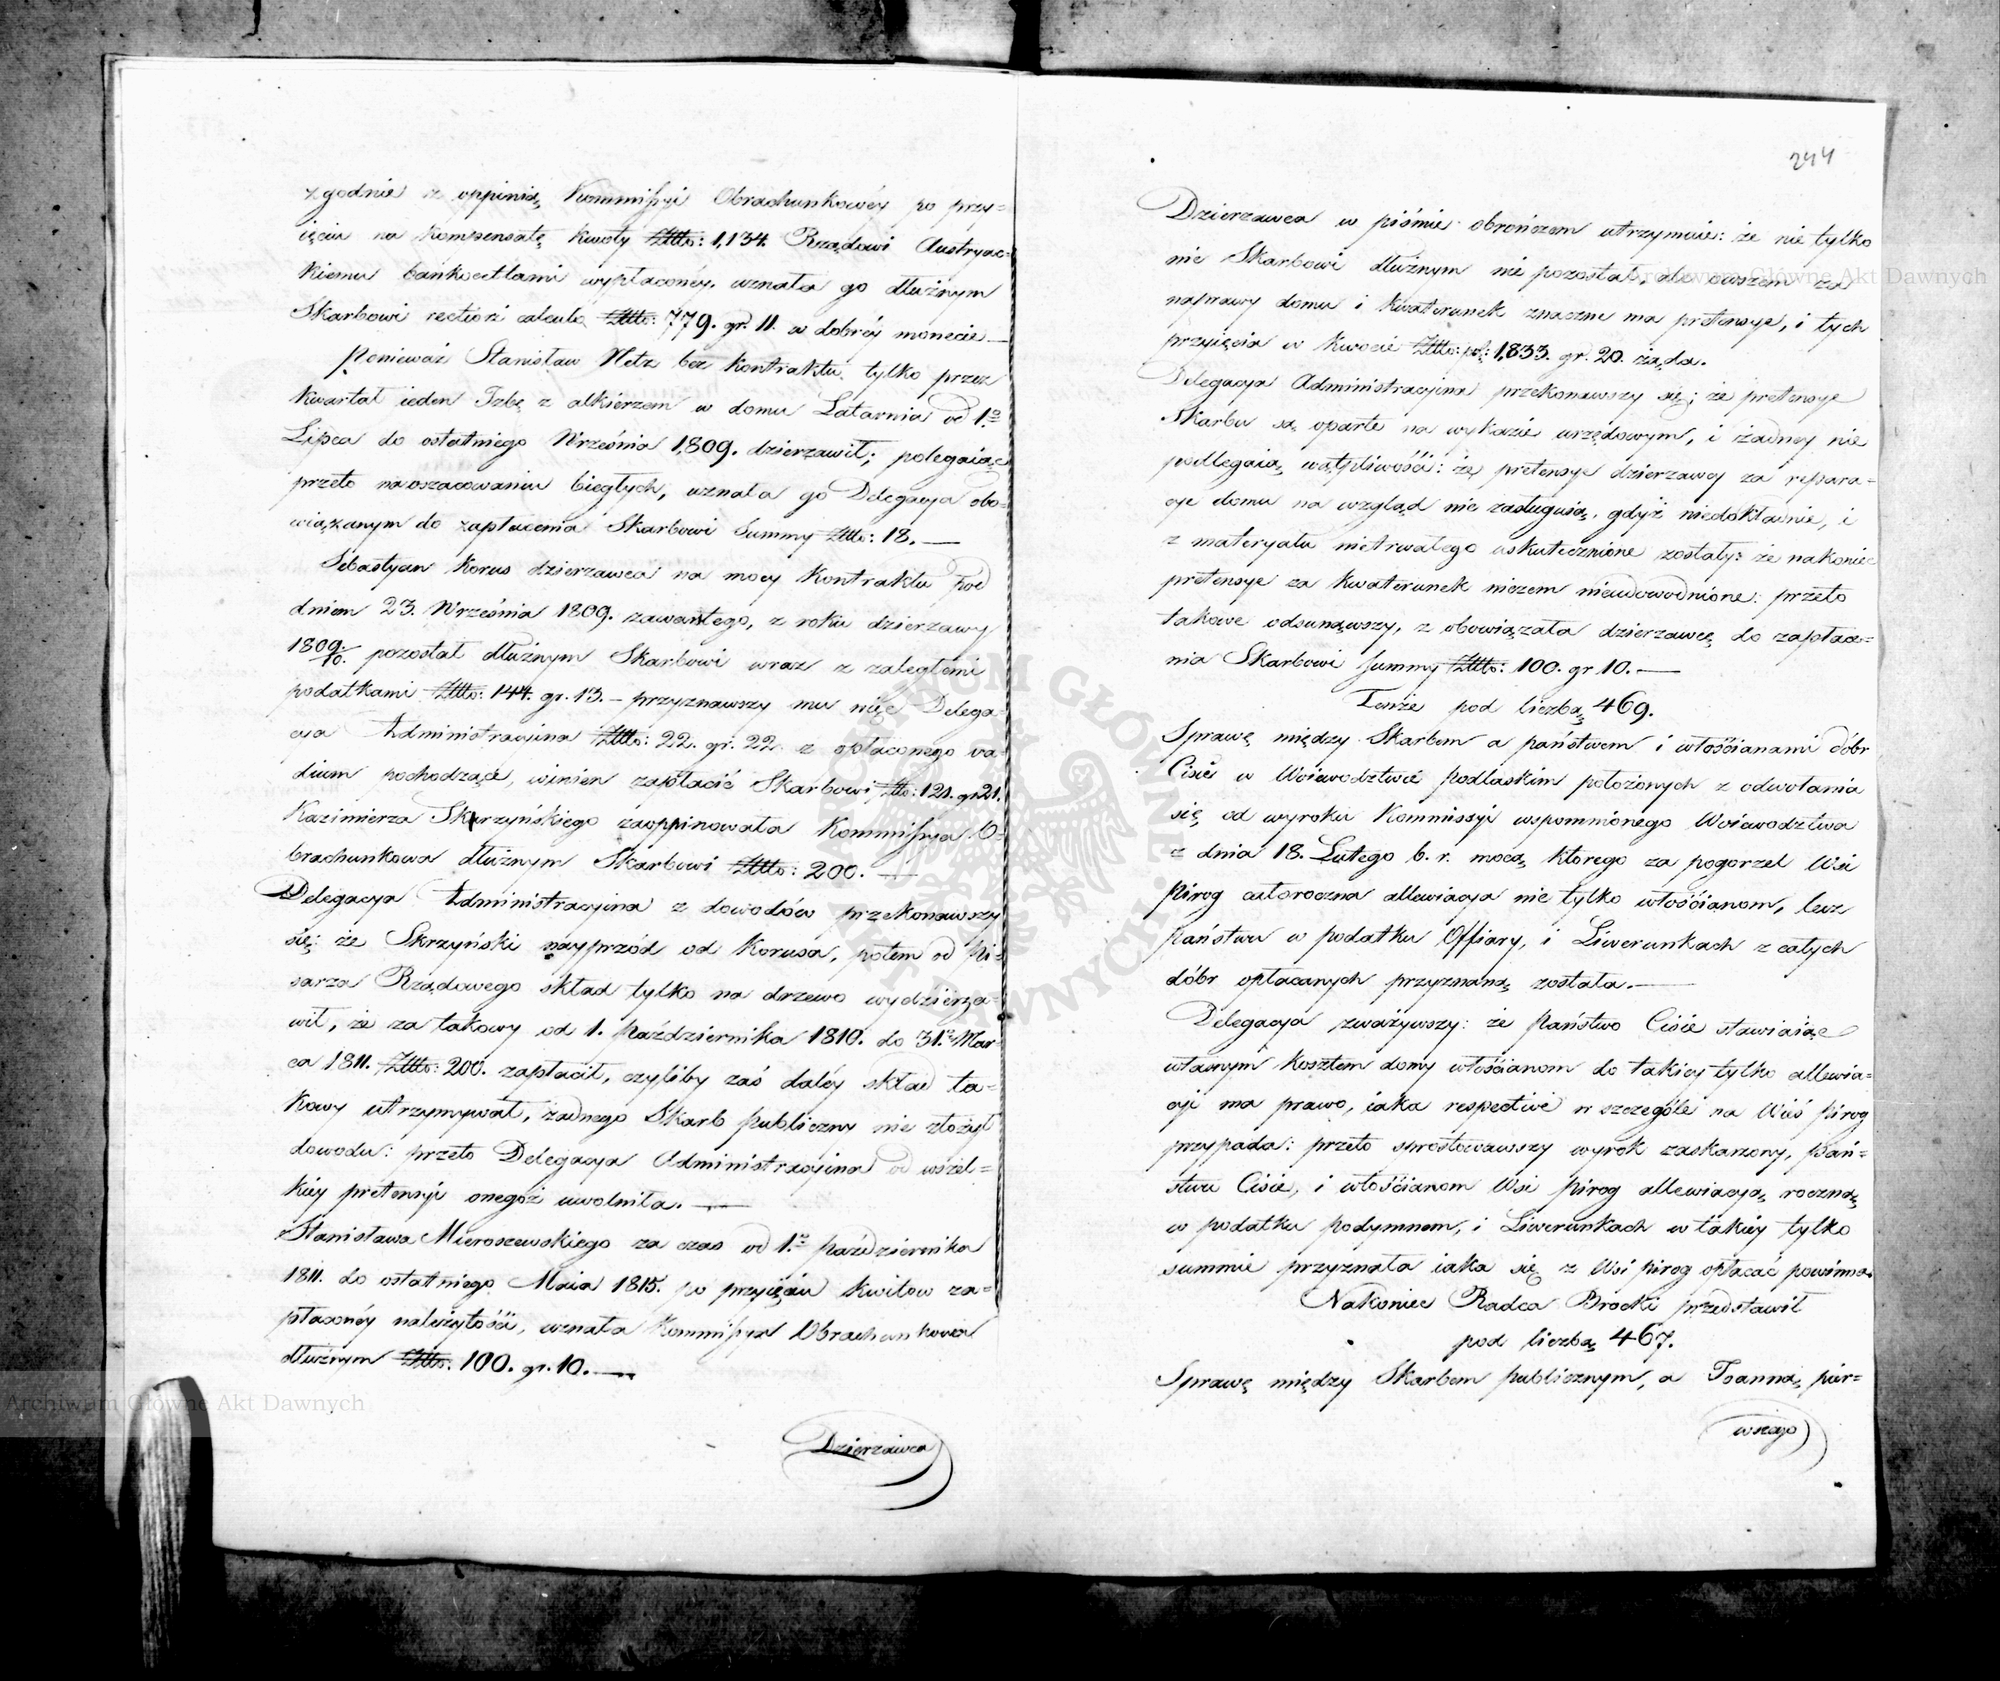 zgodnie z oppinią Kommissyi Obrachunkowéy po przy=
ięciu na kompensatę kwoty Złło: 1,134. Rządowi Austryac=
kiemu bankocetlami wypłaconéy, uznała go dłużnym
Skarbowi rectiori calculo Złło: 779. gr. 11. w dobréy monecie —
Ponieważ Stanisław Netz bez kontraktu, tylko przez
kwartał ieden Izbę z alkierzem w domu Latarnia od 1o
Lipca do ostatniego Września 1809. dzierzawił; polegaiąc
przeto na oszacowaniu biegłych, uznała go Delegacya obo=
wiązanym do zapłacenia Skarbowi Summy Złło: 18. —
Sebastyan Korus dzierzawca na mocy Kontraktu pod
dniem 23. Września 1809. zawartego, z roku dzierzawy
1809/10. pozostał dłużnym Skarbowi wraz z zaległemi
podatkami Złło: 144. gr. 13. — przyznawszy mu więc Delega=
cya Administracyina Złło: 22. gr. 22. z opłaconego va=
dium pochodzące, winien zapłacić Skarbowi Złło: 121. gr. 21.
Kazimierza Skrzyńskiego zaoppinowała Kommissya O=
brachunkowa dłużnym Skarbowi Złło: 200. —
Delegacya Administracyina z dowodów przekonawszy
się; że Skrzyński nayprzód od Korusa, potem od Pi=
sarza Rządowego skład tylko na drzewo wydzierza=
wił, że za takowy od 1. Października 1810. do 31. Mar=
ca 1811. Złło: 200. zapłacił, czyliby zaś daléy skład ta=
kowy utrzymywał, żadnego Skarb publiczny nie złożył
dowodu: przeto Delegacya Administracyina od wszel=
kiéy pretensyi onegoż uwolniła. —
Stanisława Mieroszewskiego za czas od 1. Października
1811. do ostatniego Maia 1815. po przyięciu kwitow za=
płaconéy należytości, uznała Kommissya Obrachunkowa
dłużnym Złło: 100. gr. 10. —
Dzierzawca
244
Dzierzawca w piśmie obrończem utrzymuie: że nie tylko
nie Skarbowi dłużnym nie pozostał, ale owszem za
naprawy domu i kwaterunek znaczne ma pretensye, i tych
przyięcia w kwocie Złło: pol: 1,833. gr. 20. żąda.
Delegacya Administracyina przekonawszy się; że pretensye
Skarbu są oparte na wykazie urzędowym, i żadney nie
podlegaią wątpliwości: że pretensye dzierzawcy za repara=
cye domu na wzgląd nie zasługuią, gdyż niedokładnie, i
z materyału nietrwałego uskutecznione zostały: że nakoniec
pretensye za kwaterunek niczem nieudowodnione: przeto
takowe odsunąwszy, z obowiązała dzierzawcę do zapłace=
nia Skarbowi Summy Złło: 100. gr 10. —
Tenże pod liczbą 469.
Sprawę między Skarbem a państwem i włościanami dóbr
Cisie w Woiewodztwie Podlaskim położonych z odwołania
się od wyroku Kommissyi wspomnionego Woiewodztwa
z dnia 18. Lutego b. r. mocą ktorego za pogorzel Wsi
Pirog całoroczna allewiacya nie tylko włościanom, lecz
Państwu w podatku Offiary, i Liwerunkach z całych
dóbr opłacanych przyznaną została. —
Delegacya zważywszy: że Państwo Cisie stawiaiąc
własnym kosztem domy włościanom do takiey tylko allewia=
cyi ma prawo, iaka respective w szczególe na Wieś Pirog
przypada: przeto sprostowawszy wyrok zaskarzony, Pań=
stwu Cisie, i włościanom Wsi Pirog allewiacyą roczną
w podatku podymnem, i Liwerunkach w takiéy tylko
summie przyznała iaka się z Wsi Pirog opłacać powinna.
Nakoniec Radca Brocki przedstawił
pod liczbą 467.
Sprawę między Skarbem publicznym, a Joanną pier=
wszego
Archiwum Główne Akt Dawnych
Archiwum Główne Akt Dawnych
ARCHIWUM GŁÓWNE AKT DAWNYCH